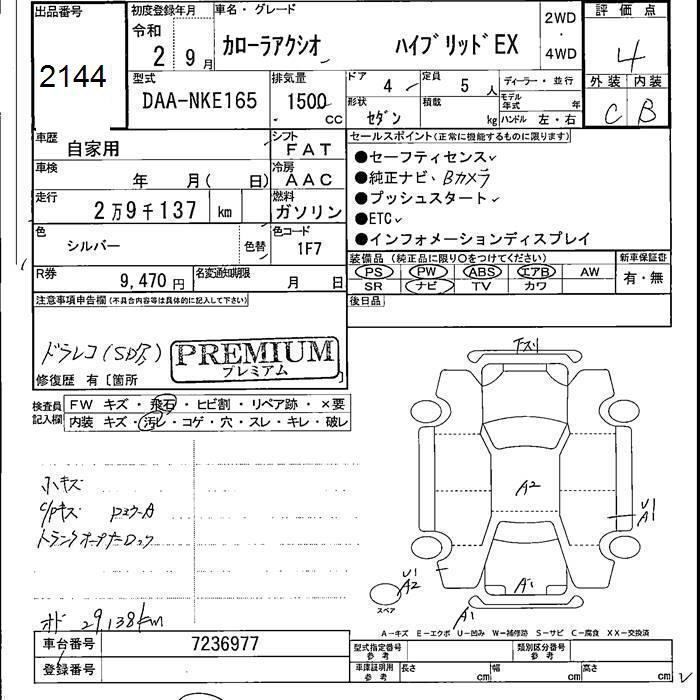 出品番号
2144
初度登録年月
令和
2 9月
車名・グレード
カローラアクシオ ハイブリッドEX
2WD
・
4WD
評価点
4
外装 内装
C B
型式
DAA-NKE165
排気量
1500 cc
ドア
4
定員
5 人
ディーラー・並行
形状
セダン
積載
kg
モデル年式 年
ハンドル 左・右
車歴
自家用
シフト
FAT
車検
年 月( 日)
冷房
AAC
走行
2万9千137 km
燃料
ガソリン
色
シルバー
色替
色コード
1F7
R券
9,470 円
名変通知期限
月 日
セールスポイント(正常に機能するものに限ります)
●セーフティセンス
●純正ナビ、Bカメラ
●プッシュスタート
●ETC
●インフォメーションディスプレイ
装備品(純正品に限り○をつけてください)
新車保証書
PS PW ABS エアB AW
SR ナビ TV カワ
有・無
後日品
注意事項申告欄(不具合内容等は具体的に記入して下さい)
ドラレコ(SD欠)
PREMIUM
プレミアム
修復歴 有〔箇所
検査員
記入欄
FW キズ・飛石・ヒビ割・リペア跡・×要
内装 キズ・汚レ・コゲ・穴・スレ・キレ・破レ
小キズ
C/Pキズ
トランクオープナー
オド 29,138km
下スリ
A2
U1
A1
U1
A2
スペア
A1
A1
A-キズ E-エクボ U-凹み W-補修跡 S-サビ C-腐食 XX-交換済
車台番号
7236977
登録番号
型式指定番号
参考
類別区分番号
参考
車庫証明用
参考
長さ cm 幅 cm 高さ cm